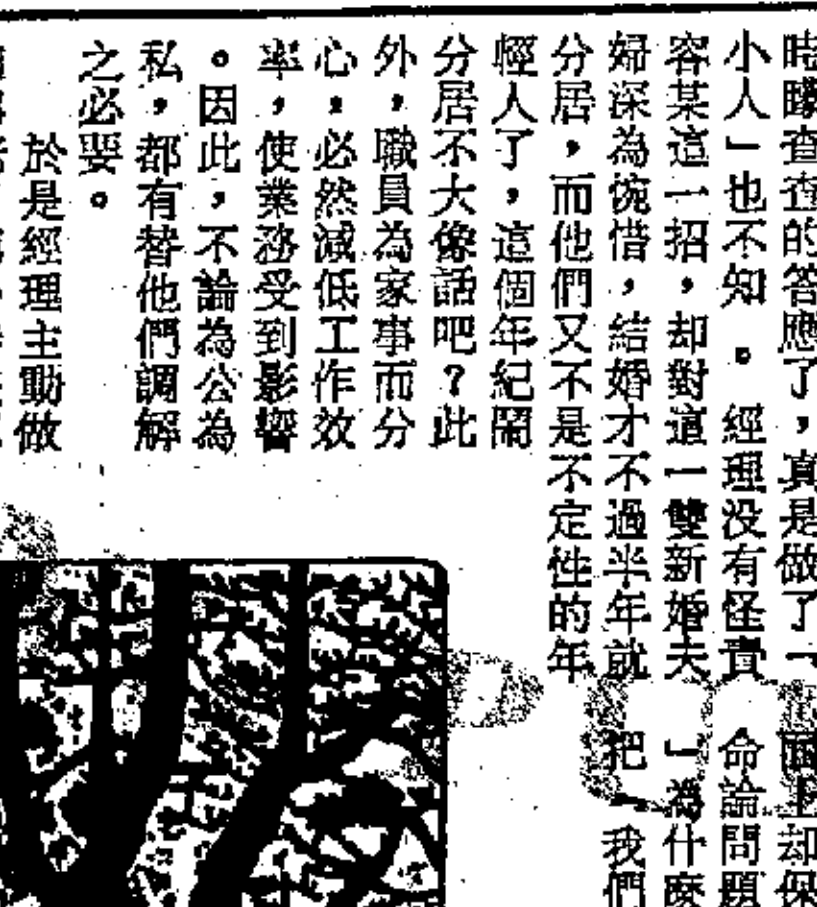 時矇查查的答應了，真是做了「
小人」也不知。經理没有怪責
容某這一招，却對這一雙新婚夫
婦深為惋惜，結婚才不過半年就
分居，而他們又不是不定性的年
輕人了，這個年紀鬧
分居不大像話吧？此
外，職員為家事而分
心，必然減低工作效
率，使業務受到影響
。因此，不論為公為
私，都有替他們調解
之必要。
於是經理主動做
却保
命論問題
」為什麽
把「我們